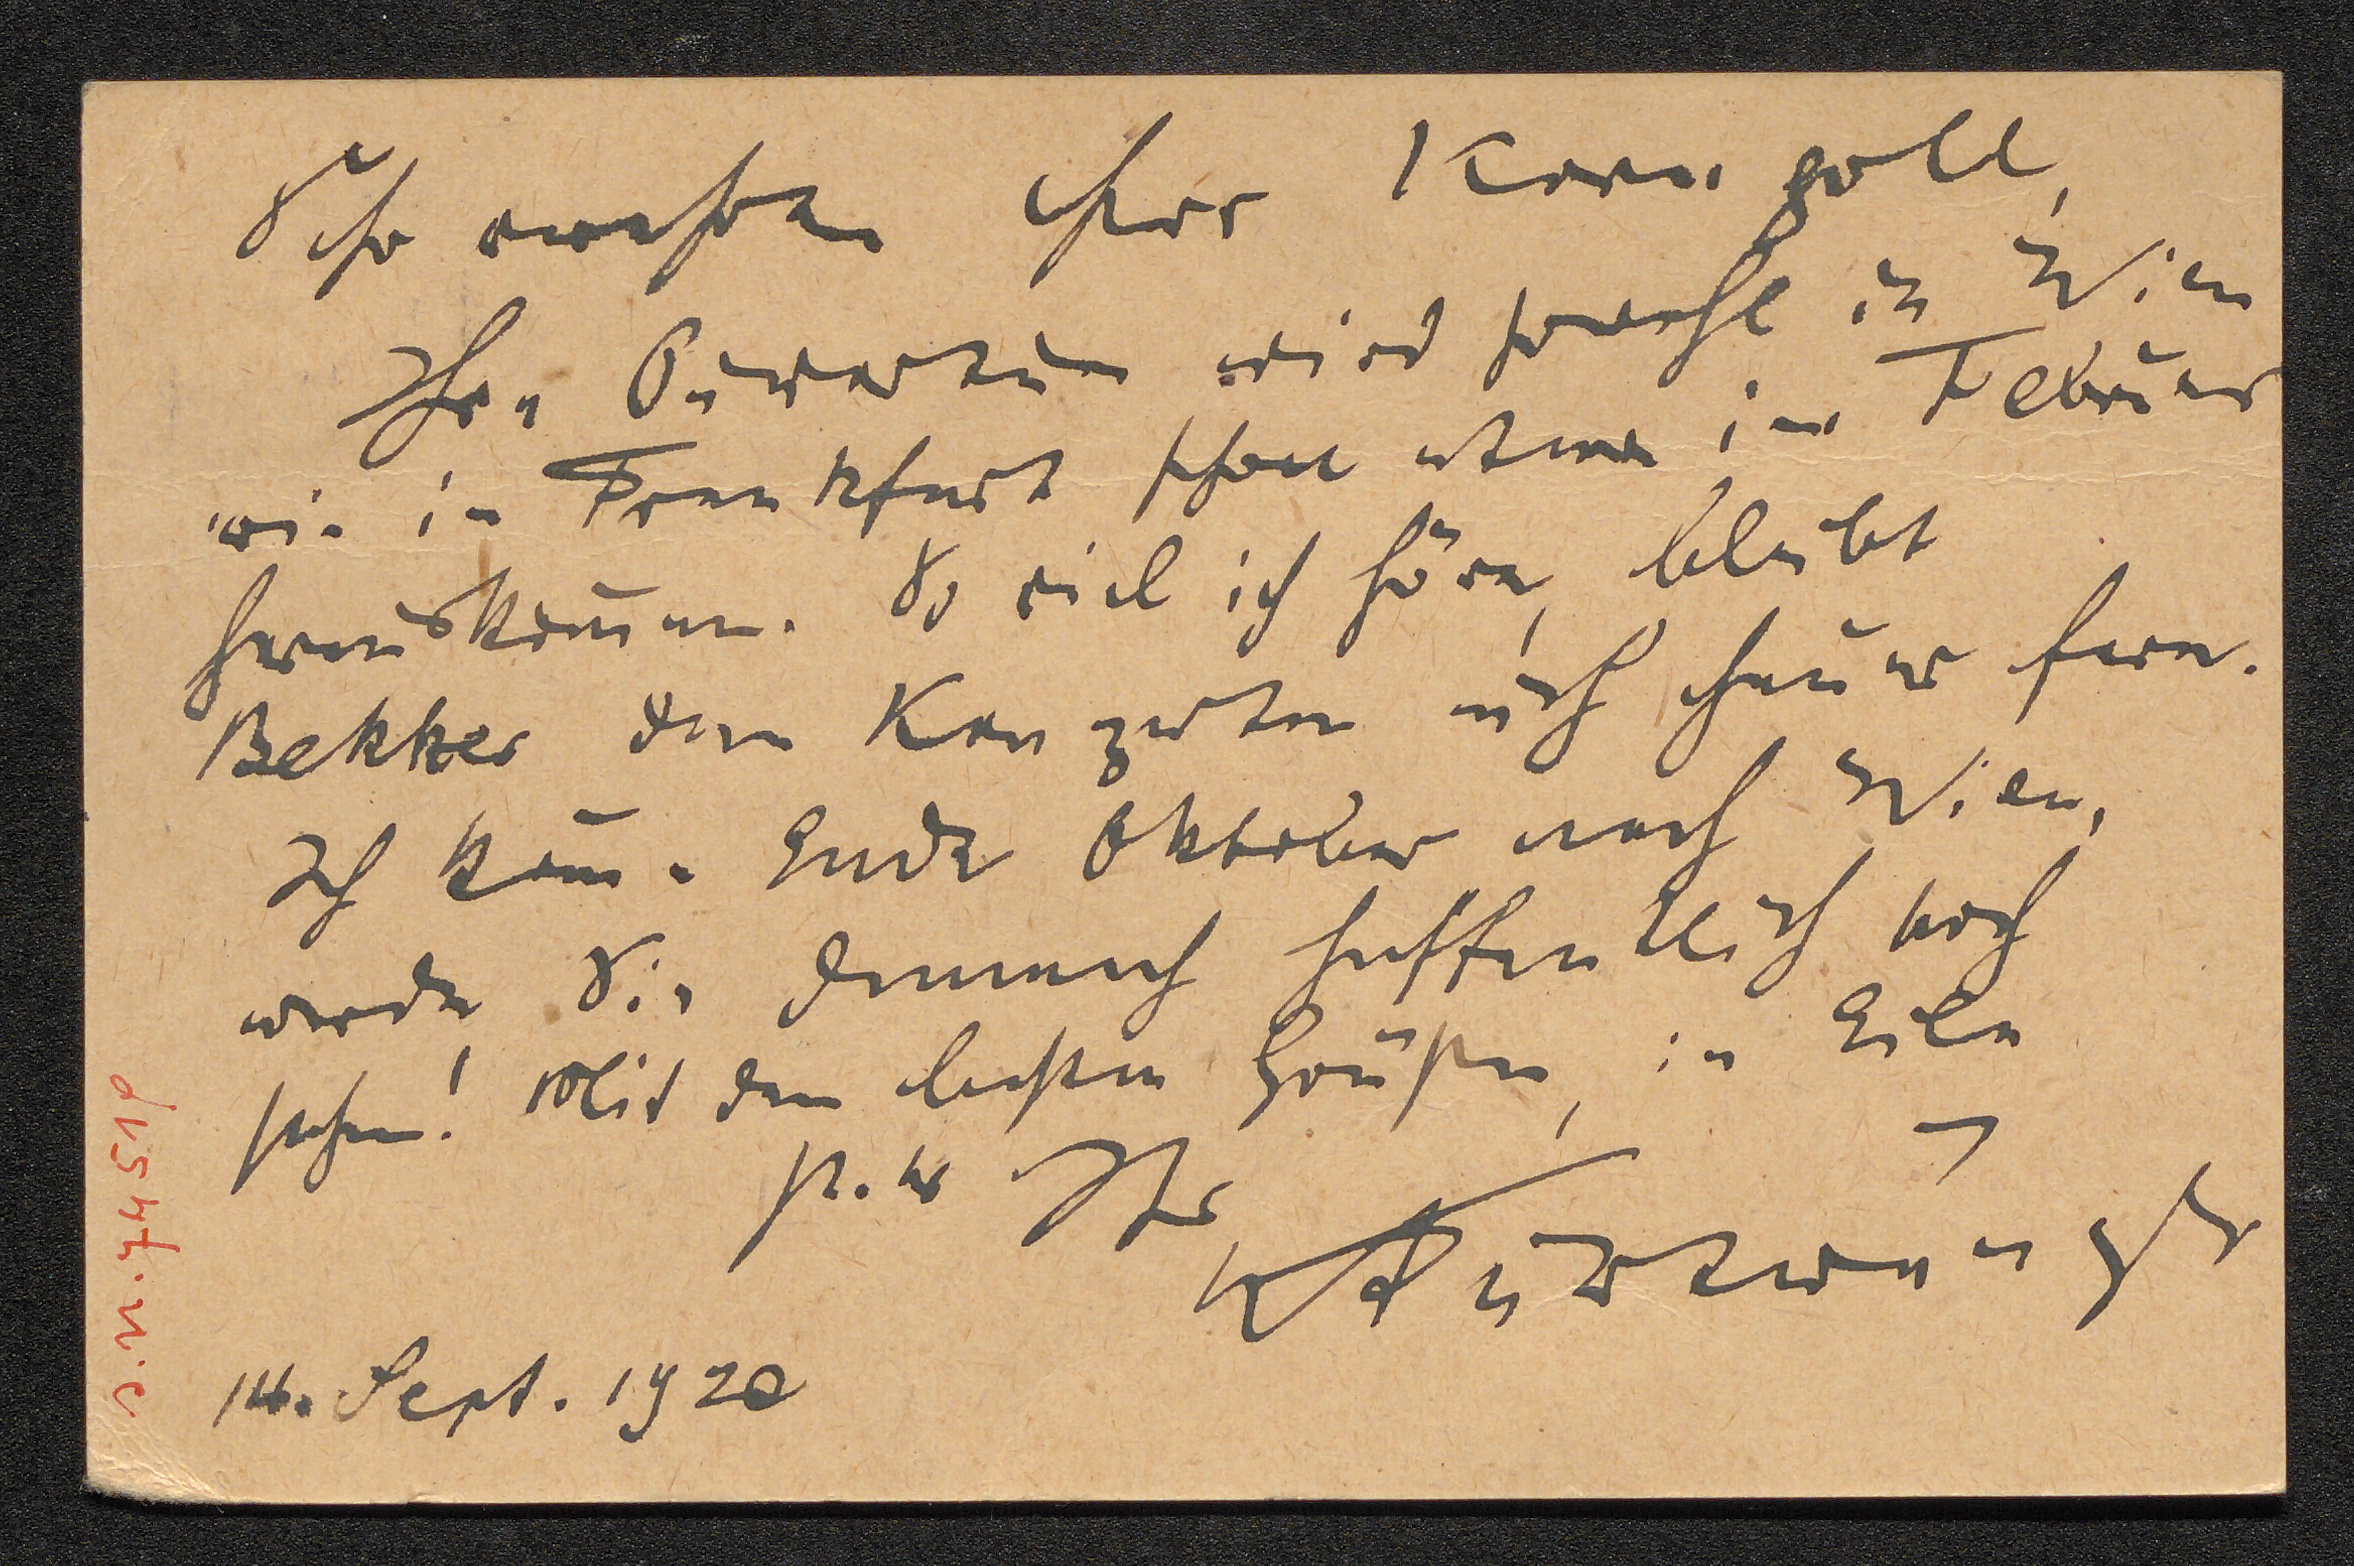 Sehr verehrter Herr Korngold,
Ihre Ouverture wird sowohl in Wien
wie in Frankfurt schon etwa im Februar
herauskom̅en. So viel ich höre, bleibt
Bekker den Konzerten auch heuer fern.
Ich kom̅e Ende Oktober nach Wien,
werde Sie demnach hoffentlich noch
sehen! Mit den besten Grüßen, in Eile
stets Ihr
W Furtwängler
14. Sept. 1920